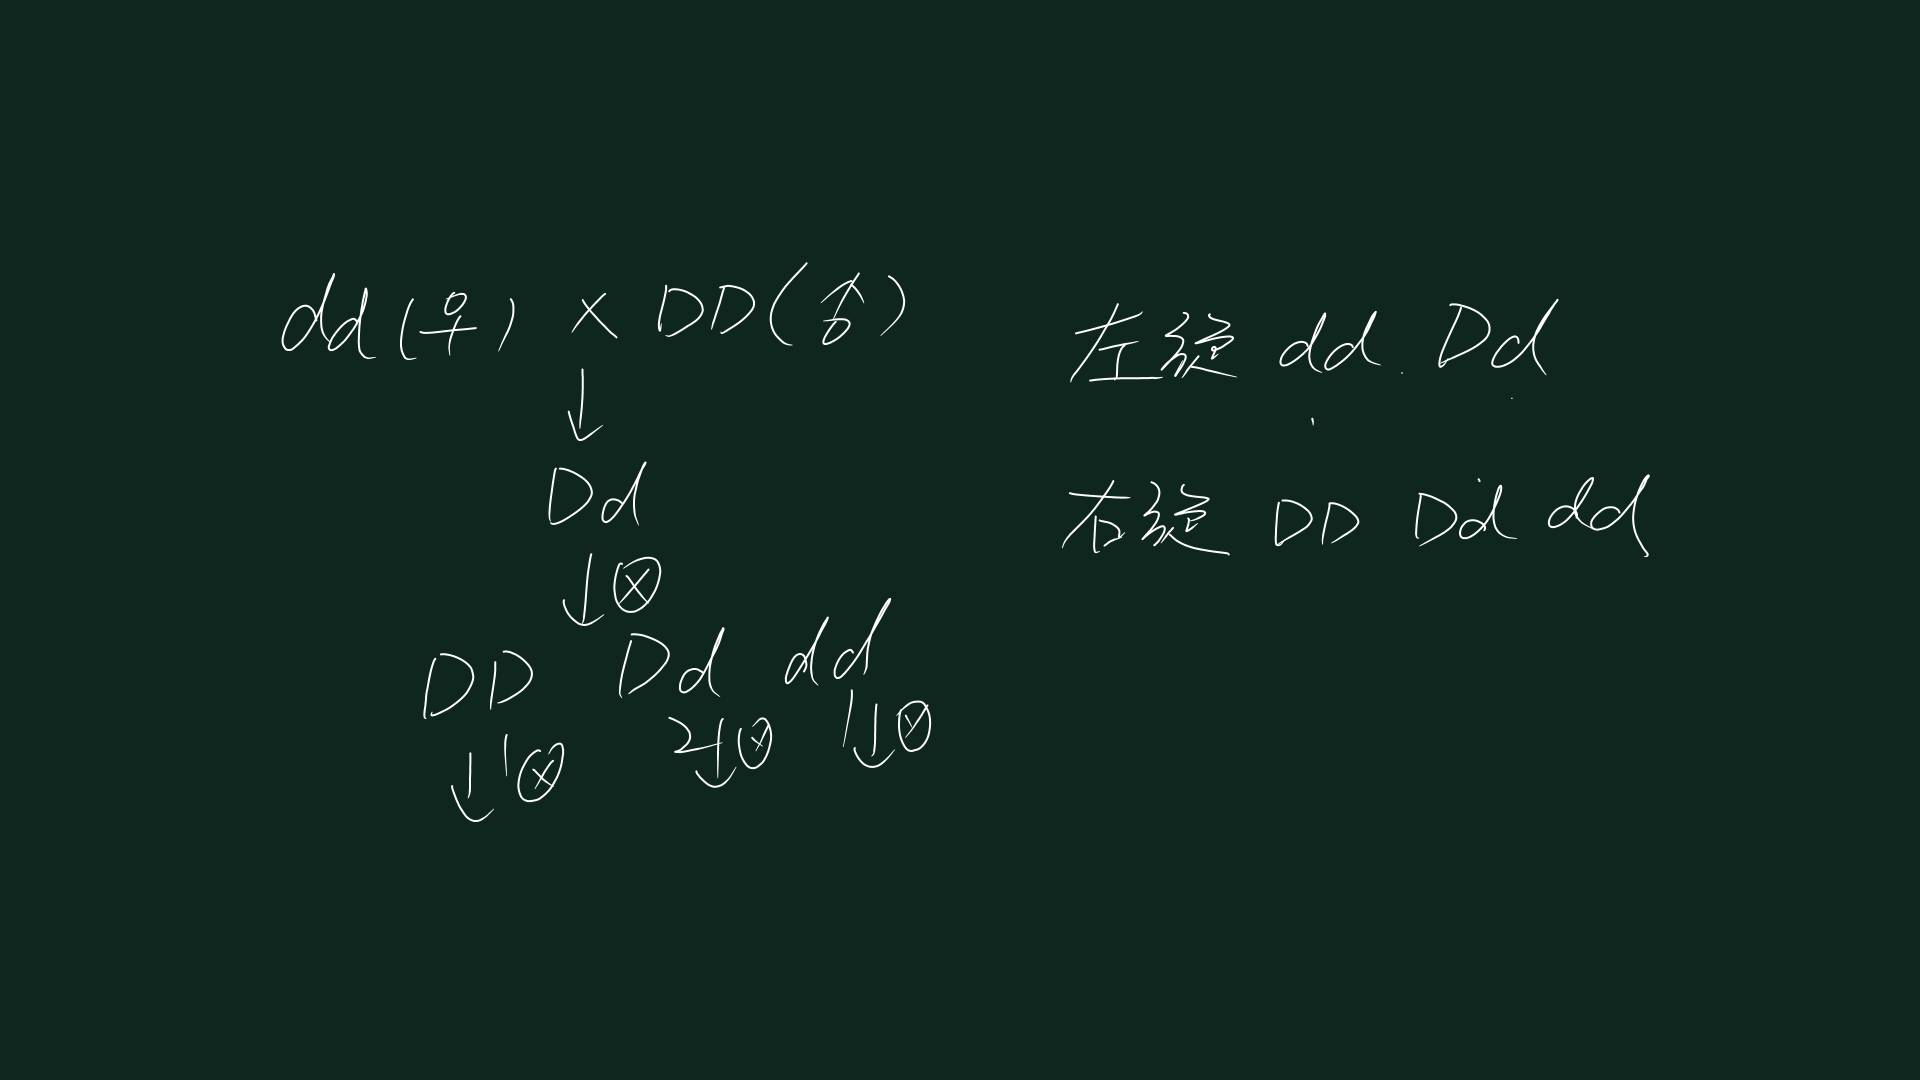 dd(♀) × DD(♂)
↓
Dd
↓⊗
DD Dd dd
↓1⊗ 2↓⊗ 1↓⊗
左旋 dd. Dd
右旋 DD Dd dd